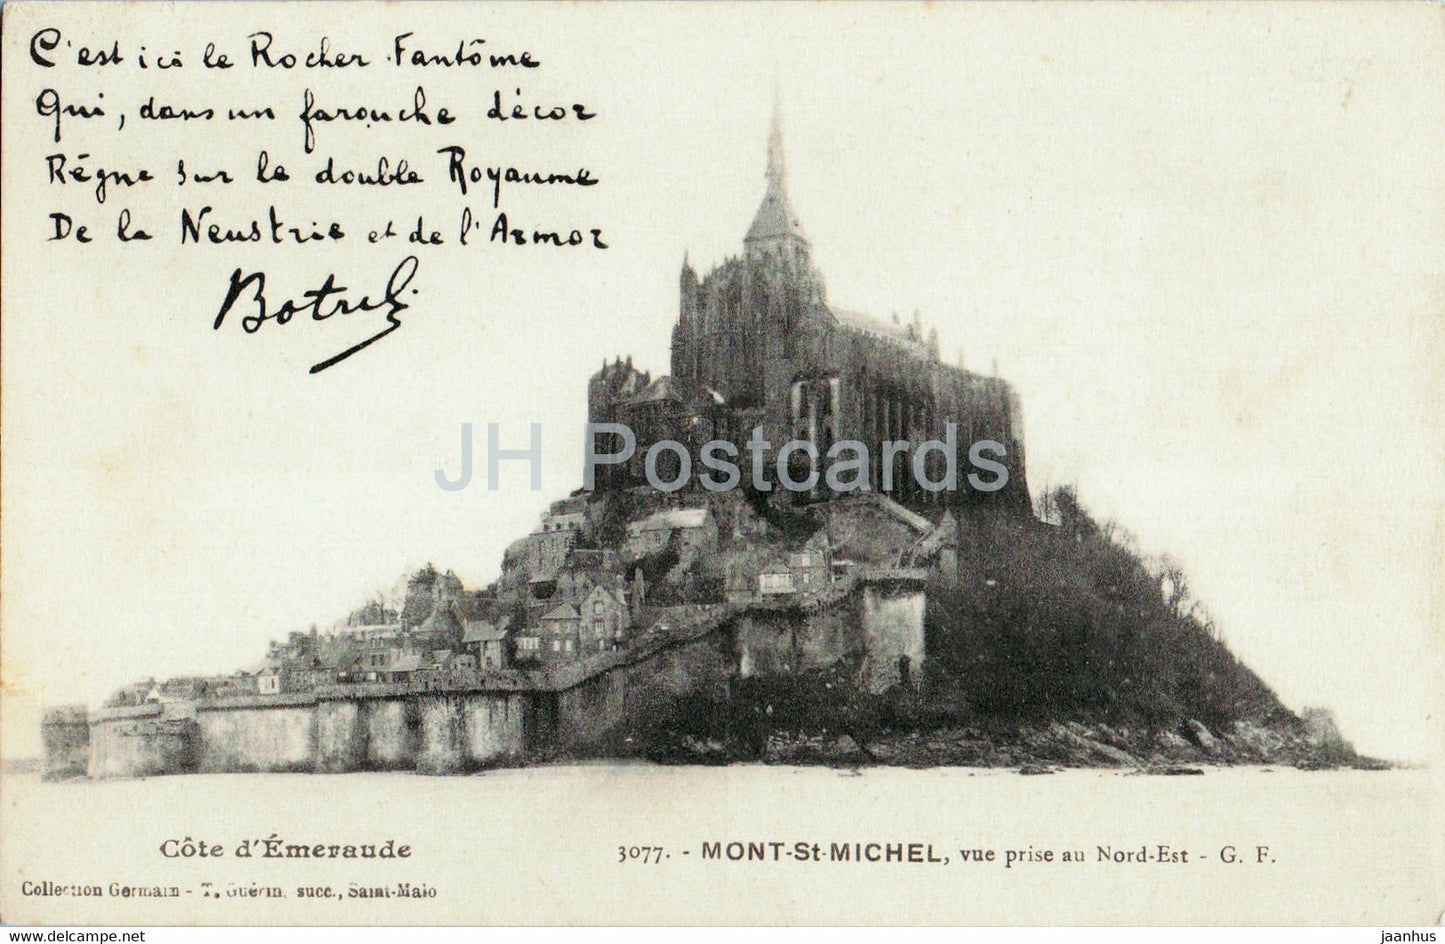 C'est ici le Rocher Fantôme
Qui, dans un farouche décor
Règne sur le double Royaume
De la Neustrie et de l'Armor
Botrel
JH Postcards
Côte d'Émeraude
3077. - MONT-St-MICHEL, vue prise au Nord-Est - G. F.
Collection Germain - T. Guérin, succ., Saint-Malo
www.delcampe.net
jaanhus